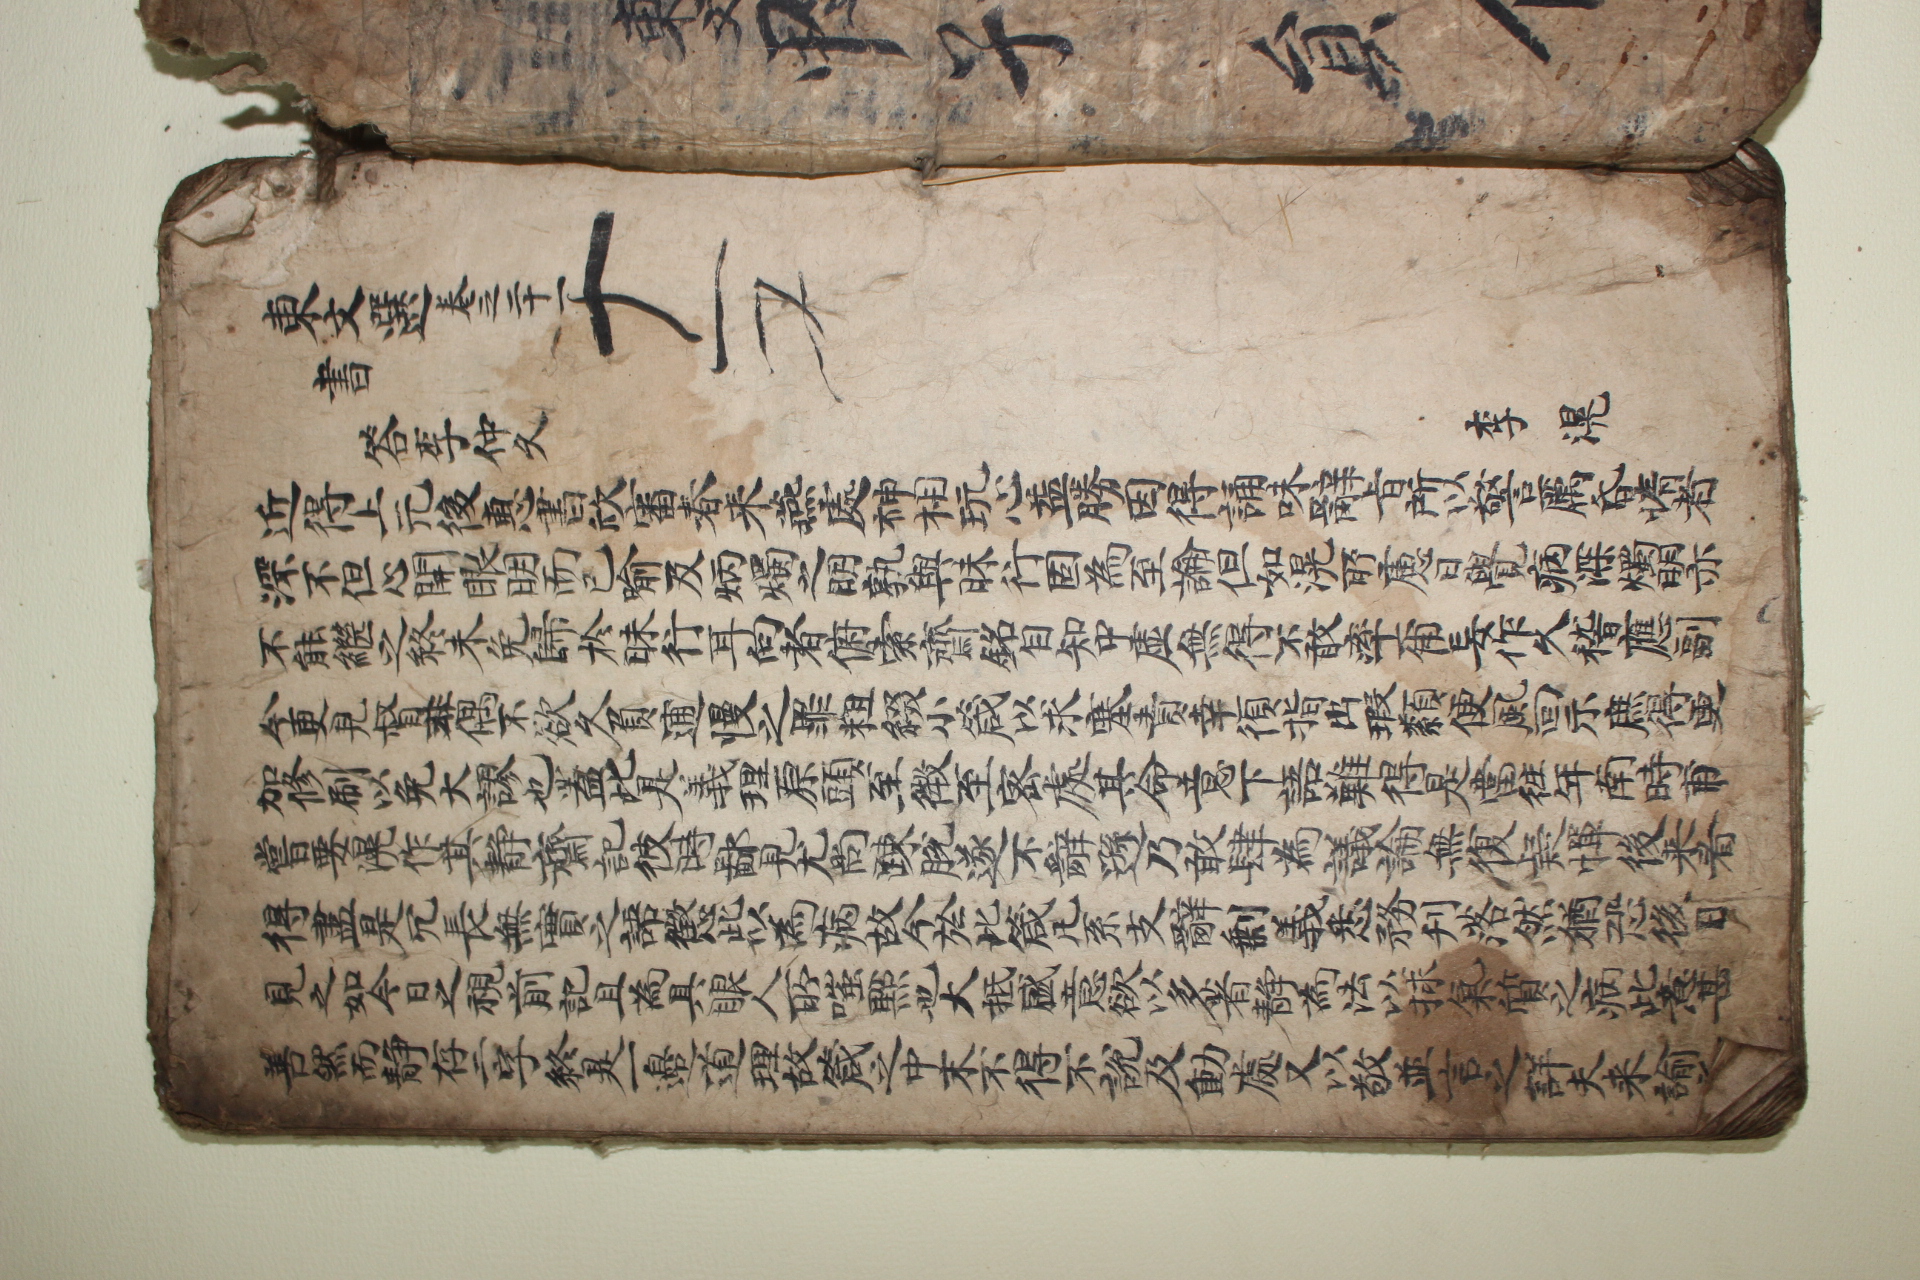 東文
甲子
貟
東文選卷之二十一
書
答李仲久
李滉
近得上元後惠書欣審春来燕處神相玩心益勝因得誦味辭旨所以警厲昏惰者
深不但心開眼明而已喻及炳燭之明孰與昧行固為至論但如滉所慮日覺病深燭明亦
不能繼之終未免歸於昧行耳向者俯索齋銘自知中虛無得不敢率甭妄作久稽應副
今更見督非偶不欲久負逋慢之罪粗綴小箴以求塞責幸須指出瑕纇便風回示庶得更
加修刷以免大謬也蓋此是義理原頭至微至密處其命意下語難得是當往年南時甫
嘗要滉作其静齋記彼時鄙見尤尚疎脫遂不辭遜乃敢肆為議論無復疑憚後来看
得儘是冗長無實之語懲此以為病故今於此箴凡系支辭剩義悉務刋落然猶恐後日
見之如今日之視前記且為具眼人所嗤點也大抵盛意欲以多著静為法以捄氣質之病此意甚
善然而静存二字終是一邊道理故箴之中末不得不說及動處又以敬並言之詳夫来諭之